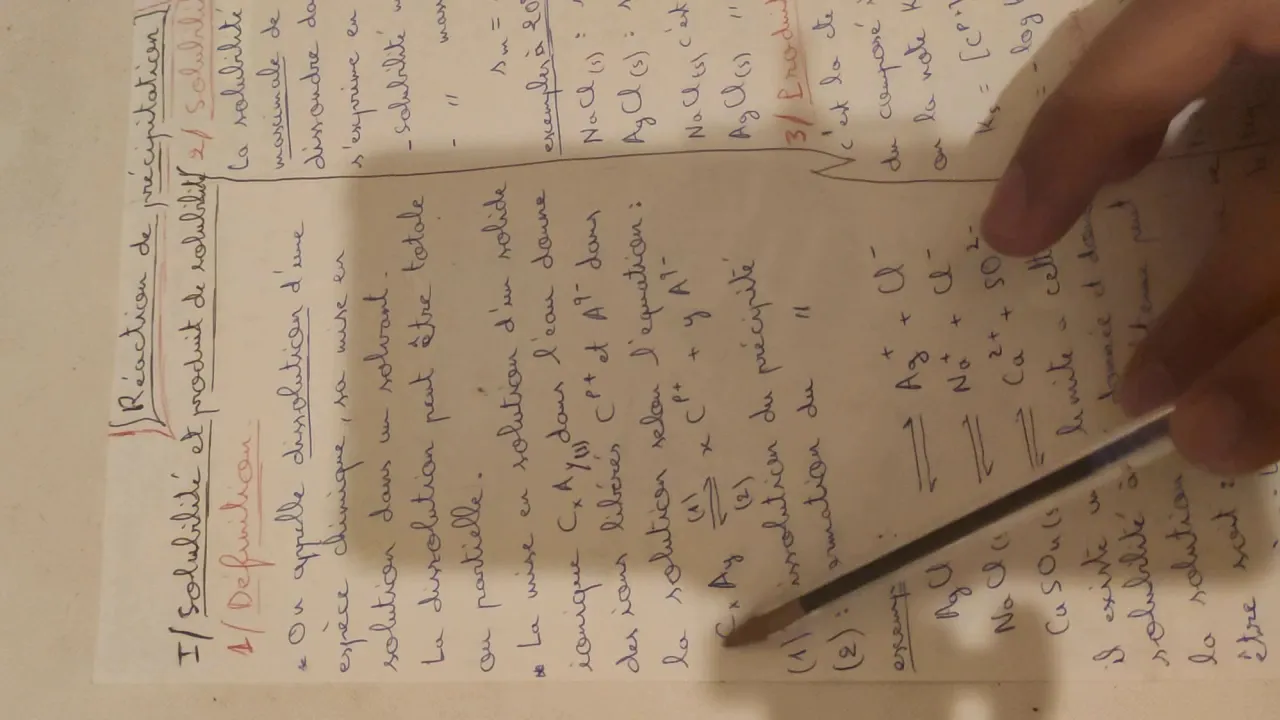 Réaction de précipitation
I/ Solubilité et produit de solubilité
1/ Définition.
* On appelle dissolution d'une
espèce chimique, sa mise en
solution dans un solvant.
La dissolution peut être totale
ou partielle.
* La mise en solution d'un solide
ionique CxAy(s) dans l'eau donne
des ions libérés C^P+ et A^q- dans
la solution selon l'équation:
CxAy (1) ⇌ (2) x C^P+ + y A^q-
(1) issolution du précipité
(2): ormation du "
exemp
AgCl ⇌ Ag+ + Cl-
NaCl ⇌ Na+ + Cl-
⇌ Ca2+ + SO 2-
il existe limite a
solubilité
la solution
être soit
2/ Solubili
La solubilité
maximale de
dissoudre da
s'exprime en
- solubilité
- "
sm =
exemples à 20
NaCl(s) :
AgCl(s) :
NaCl(s) c'est
AgCl(s) "
3/ Produit
c'est la cte
du composé
on la note K
Ks = [C^P+]
= - log